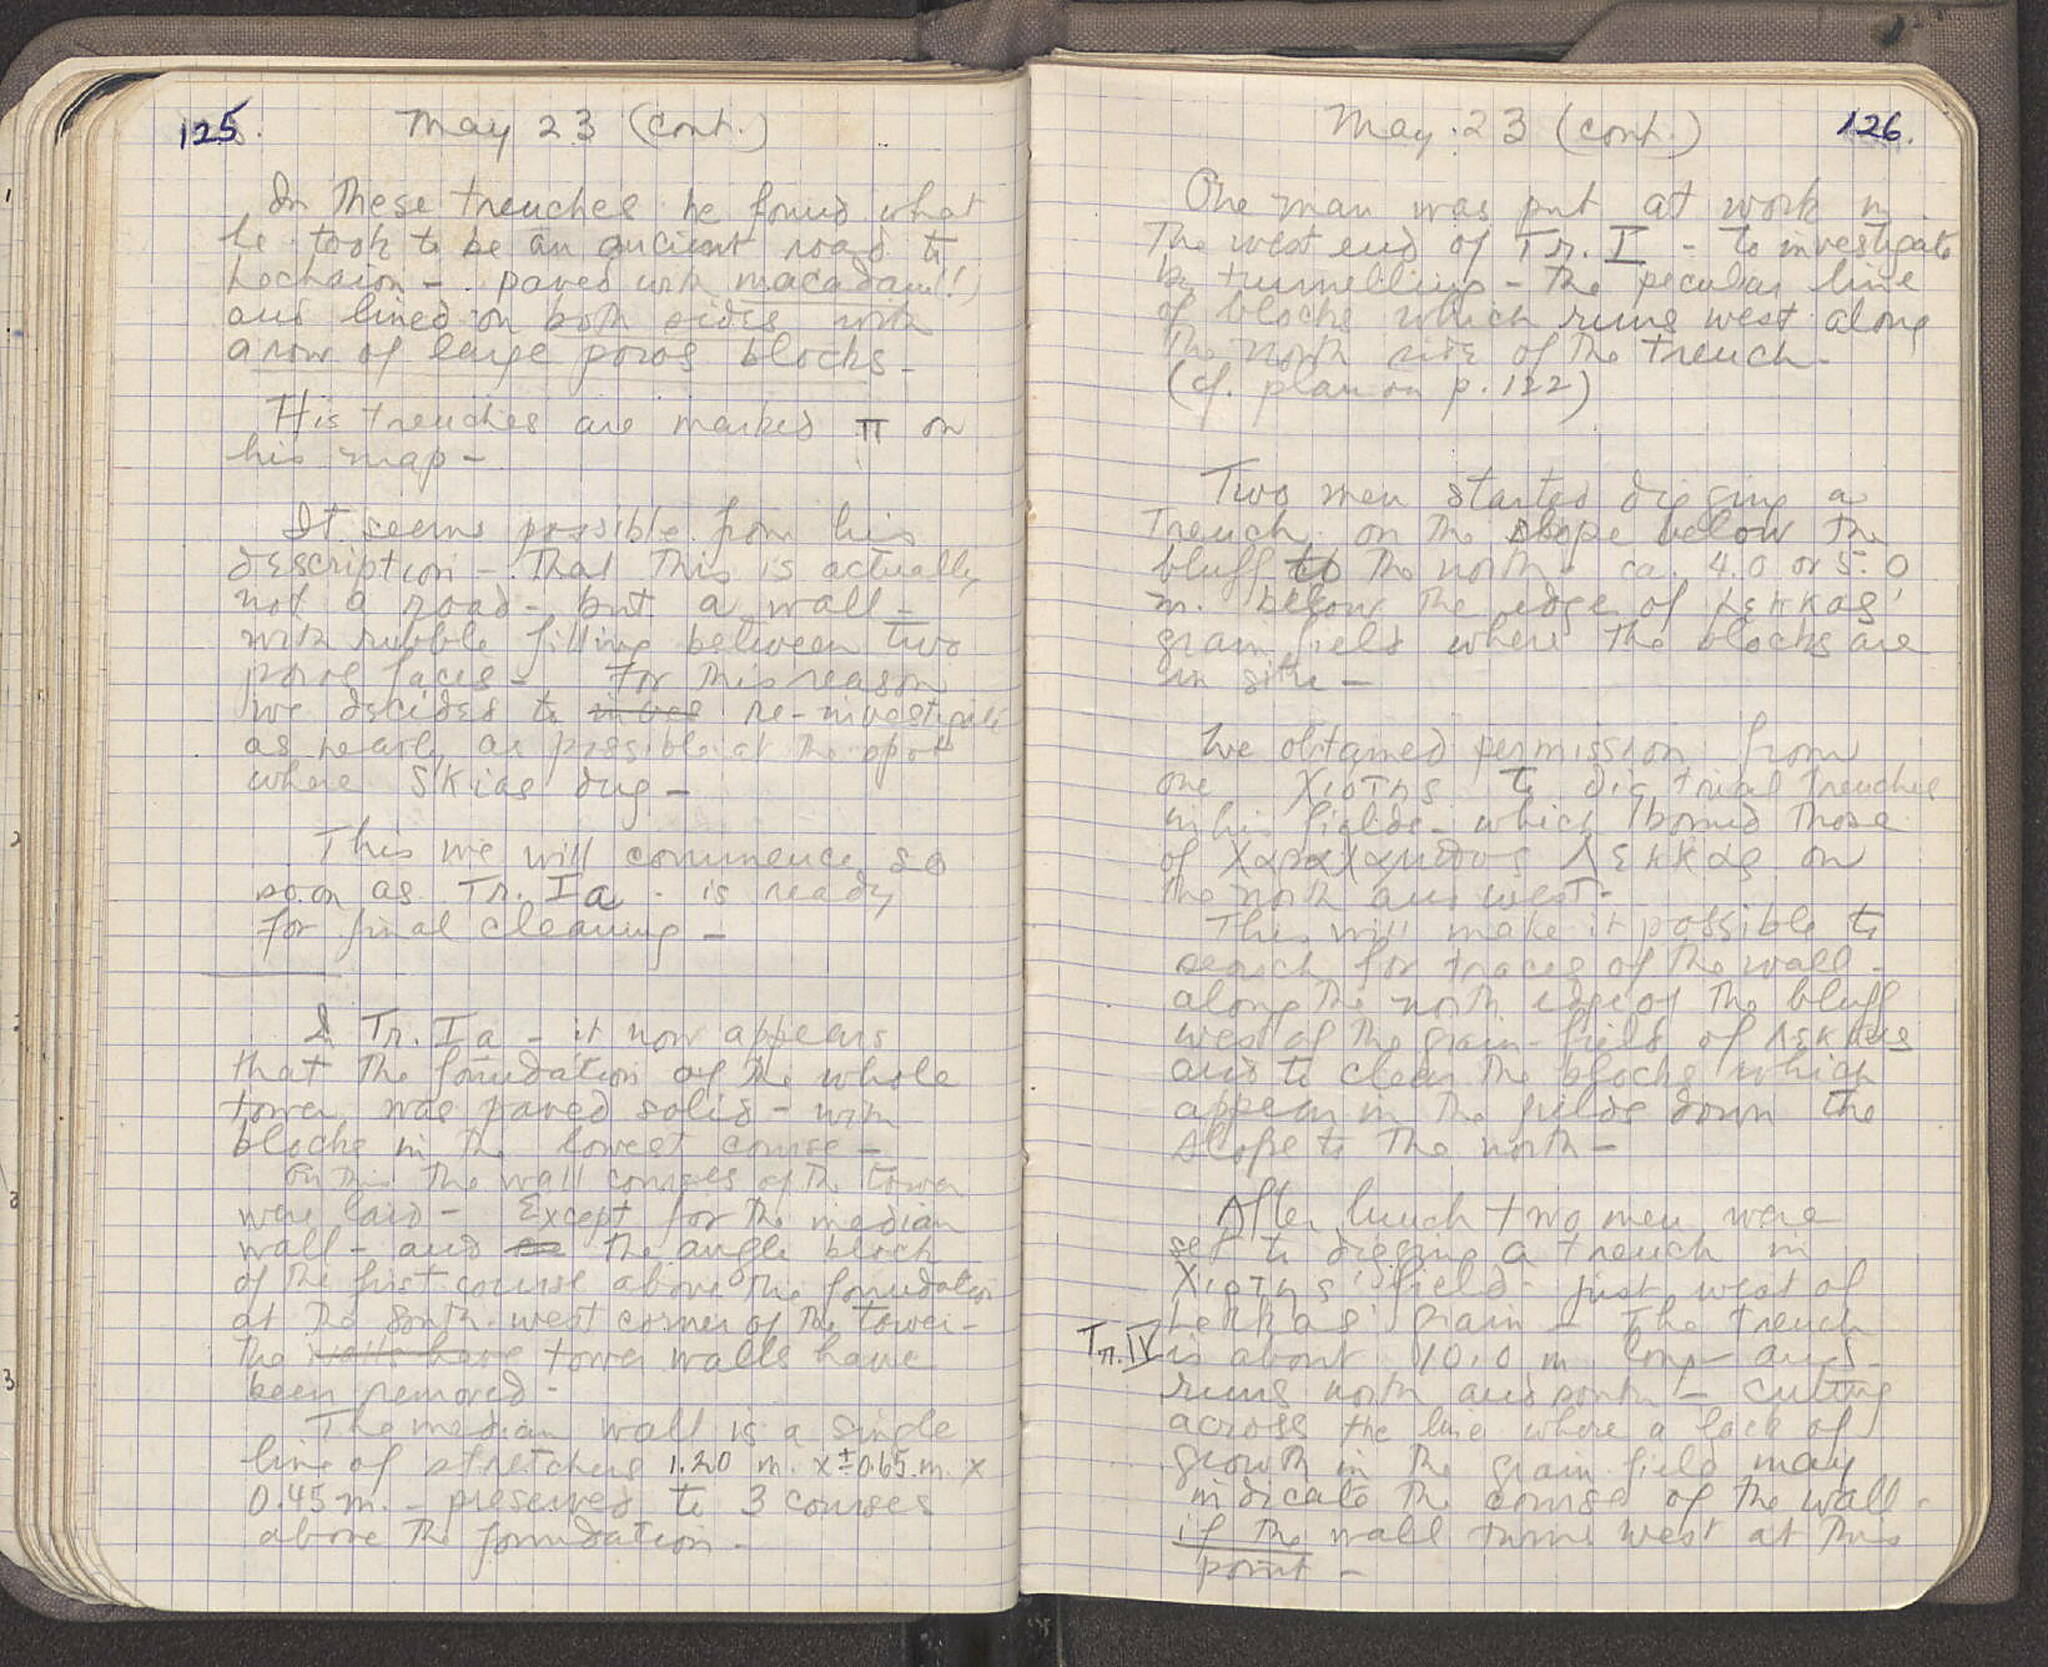 125.
May 23 (cont.)
In these trenches he found what
he took to be an ancient road to
Lechaion - paved with macadam(!)
and lined on both sides with
a row of large poros blocks -
His trenches are marked π on
his map -
It seems possible from his
description - that this is actually
not a road - but a wall -
with rubble filling between two
poros faces - For this reason
we decided to inves re-investigate
as nearly as possible at the spot
where Skias dug -
This we will commence so
soon as Tr. Ia - is ready
for final cleaning -
In Tr. Ia - it now appears
that the foundation of the whole
tower was paved solid - with
blocks in the lowest course -
On this the wall courses of the tower
were laid - Except for the median
wall - and the angle block
of the first course above the foundation
at the south-west corner of the tower -
the walls have tower walls have
been removed -
The median wall is a single
line of stretchers 1.20 m. x ± 0.65 m. x
0.45 m. - preserved to 3 courses
above the foundation -
May 23 (cont.)
126.
One man was put at work in
the west end of Tr. I - to investigate
by tunnelling - the peculiar line
of blocks which runs west along
the north side of the trench -
(cf. plan on p. 122)
Two men started digging a
trench on the slope below the
bluff to the north - ca. 4.0 or 5.0
m. below the edge of Lekkas'
grain field where the blocks are
in situ -
We obtained permission from
one Χιοτης to dig trial trenches
in his fields - which border those
of Χαραλαμπους Λεκκας on
the north and west -
This will make it possible to
search for traces of the wall -
along the north edge of the bluff
west of the grain-field of Λεκκας
and to clear the blocks which
appear in the fields down the
slope to the north -
After lunch two men were
set to digging a trench in
Χιοτης' field - just west of
Lekkas' grain - The trench
Tr. IV is about 10.0 m long and
runs north and south - cutting
across the line where a lack of
growth in the grain field may
indicate the course of the wall -
if the wall turns west at this
point -